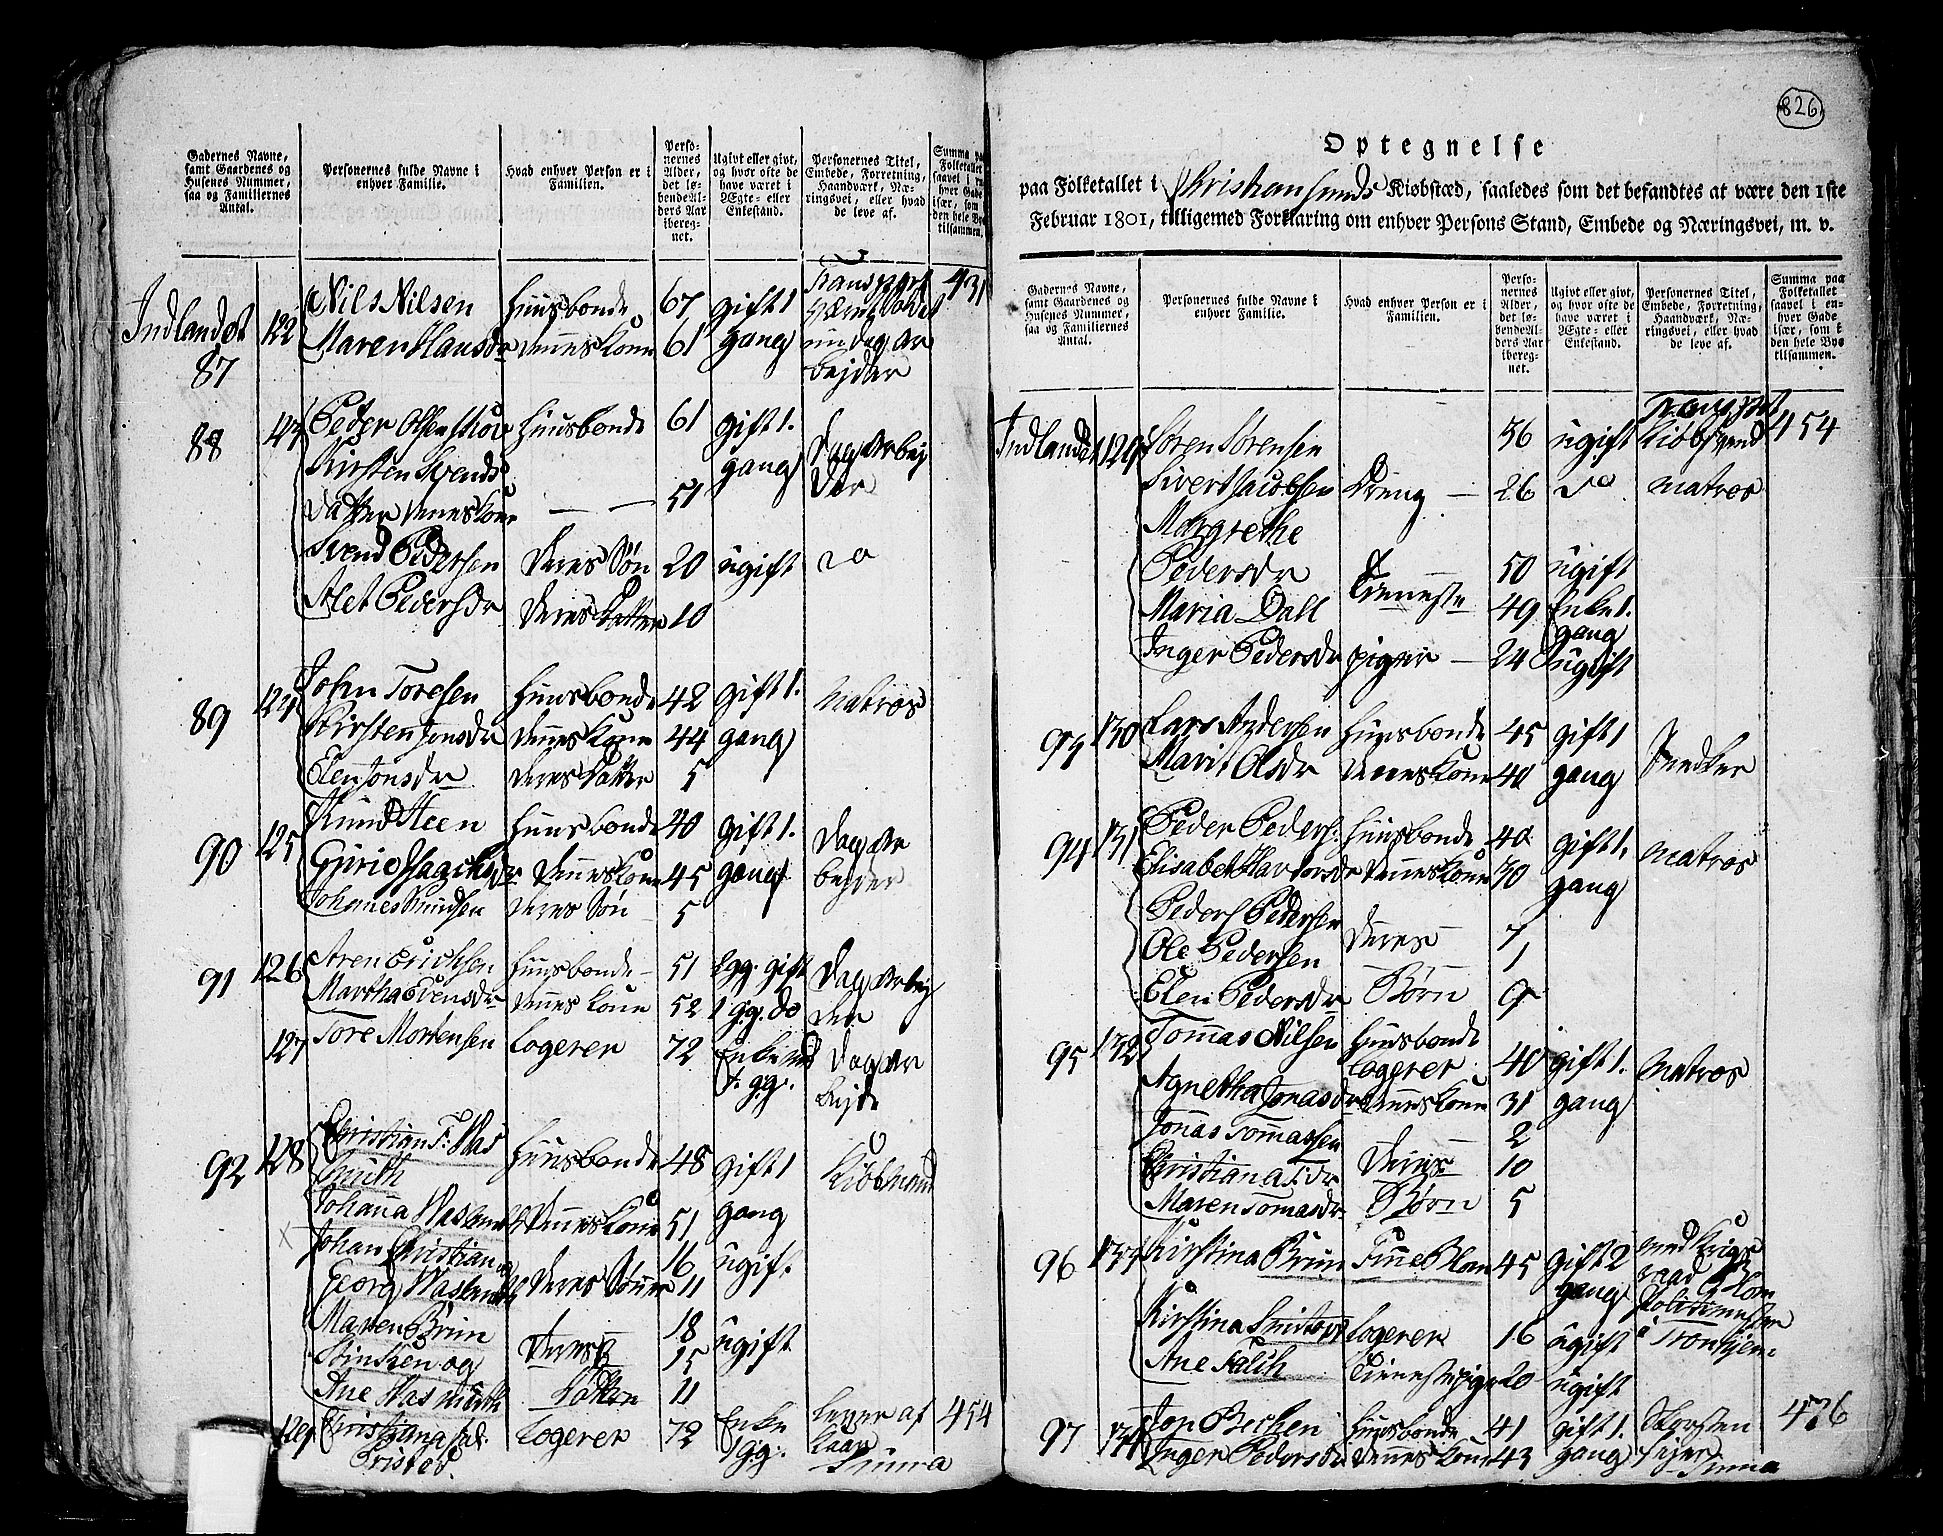 Gadernes Navne, samt Gaardenes og Husenes Nummer, saa og Familiernes Antal.
Personernes fulde Navne i enhver Familie.
Hvad enhver Person er i Familien.
Personernes Alder, det løbende Alders Aar iberegnet.
Ugivt eller givt, og hvor ofte de have været i Ægte- eller Enkestand.
Personernes Titel, Embede, Forretning, Haandværk, Næringsvei, eller hvad de leve af.
Summa paa Folketallet saavel i enhver Gade især, som i den hele Bye tilsammen.
Transport 431
Indlandet 122 Nils Nilsen Huusbonde 67 gift 1
87 Maren Hansdr Hennes Kone 61 gang
un dagar
bejder
88 123 Peder Olsen Huusbonde 61 gift 1.
Kirsten Svends gang Dagarbej
datter hennes Kone — — 51 der
Svend Pedersen Deres Søn 20 ugift do
Alet Pedersdr Deres Datter 10
89 124 John Toresen Huusbonde 42 gift 1. Matros
Kirsten Jonsdr Hennes Kone 44 gang
Elen Jonsdr Deres Datter 5
90 125 Knud Steen Huusbonde 40 gift 1. Dagar
Guri Hennes Kone 45 gang bejder
Johanes Knudsen Deres Søn 5
91 126 Aren Erichsen Huusbonde 51 2gg. gift Dagarbej
Martha Evensdr Hennes Kone 52 1 gg. do der
127 Tore Mortensen Logerer 72 Enkemd Dagar
1. gg. bejde
92 128 Christian F: Was
muth Huusbonde 48 gift 1 Kiøbmand
Johanna Wasmuth Hennes Kone 51 gang
Johan Christian og 16 ugift
Georg Wasmuth Deres Sønner 11
Maren Brun 18
Stinken og Deres 15 ugift
Ane Wasmuth Døttre 11
129 Christiana sal.
Logerer 72 Enke lever af 454
Cristed. 1 gg:
Summa
826
Optegnelse
paa Folketallet i Christiansunds Kiøbstæd, saaledes som det befandtes at være den 1ste
Februar 1801, tilligemed Forklaring om enhver Persons Stand, Embede og Næringsvei, m. v.
Gadernes Navne, samt Gaardenes og Husenes Nummer, saa og Familiernes Antal.
Personernes fulde Navne i enhver Familie.
Hvad enhver Person er i Familien.
Personernes Alder, det løbende Alders Aar iberegnet.
Ugivt eller givt, og hvor ofte de have været i Ægte- eller Enkestand.
Personernes Titel, Embede, Forretning, Haandværk, Næringsvei, eller hvad de leve af.
Summa paa Folketallet saavel i enhver Gade især, som i den hele Bye tilsammen.
Transport 454
Indlandet 129 Søren Sørensen 36 ugift Kiøbsvend
Sivert Jacobsen Dreng — 26 do Matros
Margrethe
Pedersdr 50 ugift
Maria Dall Tieneste 49 Enke 1.
gang
Inger Pedersdr piger — 24 ugift
93 130 Lars Andersen Huusbonde 45 gift 1
Marit Olsdr Hennes Kone 40 gang Snedker
94 131 Peder Peders: Huusbonde 40 gift 1.
Elisabet Hennes Kone 30 gang Matros
Peder Pedersen Deres 7
Ole Pedersen 1
Elen Pedersdr Børn 9
95 132 Tomas Nilsen Huusbonde
Logerer 40 gift 1. Matros
Agnetha Jonasdr Hennes Kone 31 gang
Jonas Tomassen 2
Christiana T:dr Deres 10
Maren Tomasdr Børn 5
96 133 Kirstina Brun Frue Blom 45 gift 2 med Krigs
gang raad Blom
Politimester
Kirstina Logerer 16 ugift i Tronhjem
Ane Falch Tienestepige 20 ugift
97 134 Jon Bechen Huusbonde 41 gift 1. Skorsten 476
Inger Pedersdr Hennes Kone 43 gang fejer
Summa